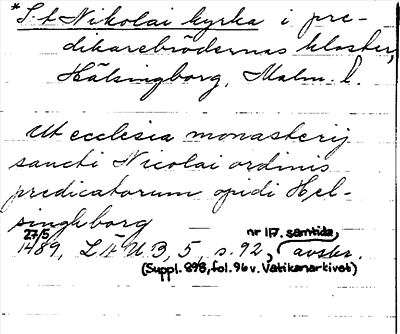 *S:t Nikolai kyrka i pre-
dikarebrödernas kloster,
Hälsingborg, Malm. l.
Ut ecclesia monasterij
sancti Nicolai ordinis
predicatorum opidi Hel-
singhborg
27/5 nr 117. samtida,
1489, LÄU 3, 5, s. 92, avskr.
(Suppl. 898, fol. 96 v. Vatikanarkivet)